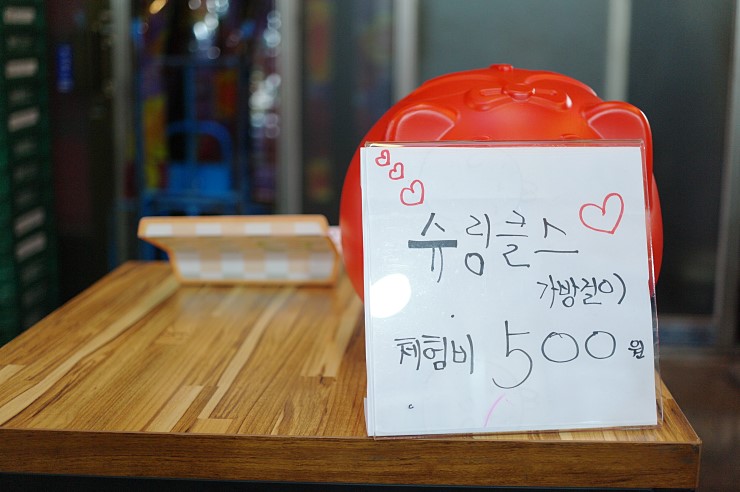 슈링클스
가방걸이)
체험비 500원